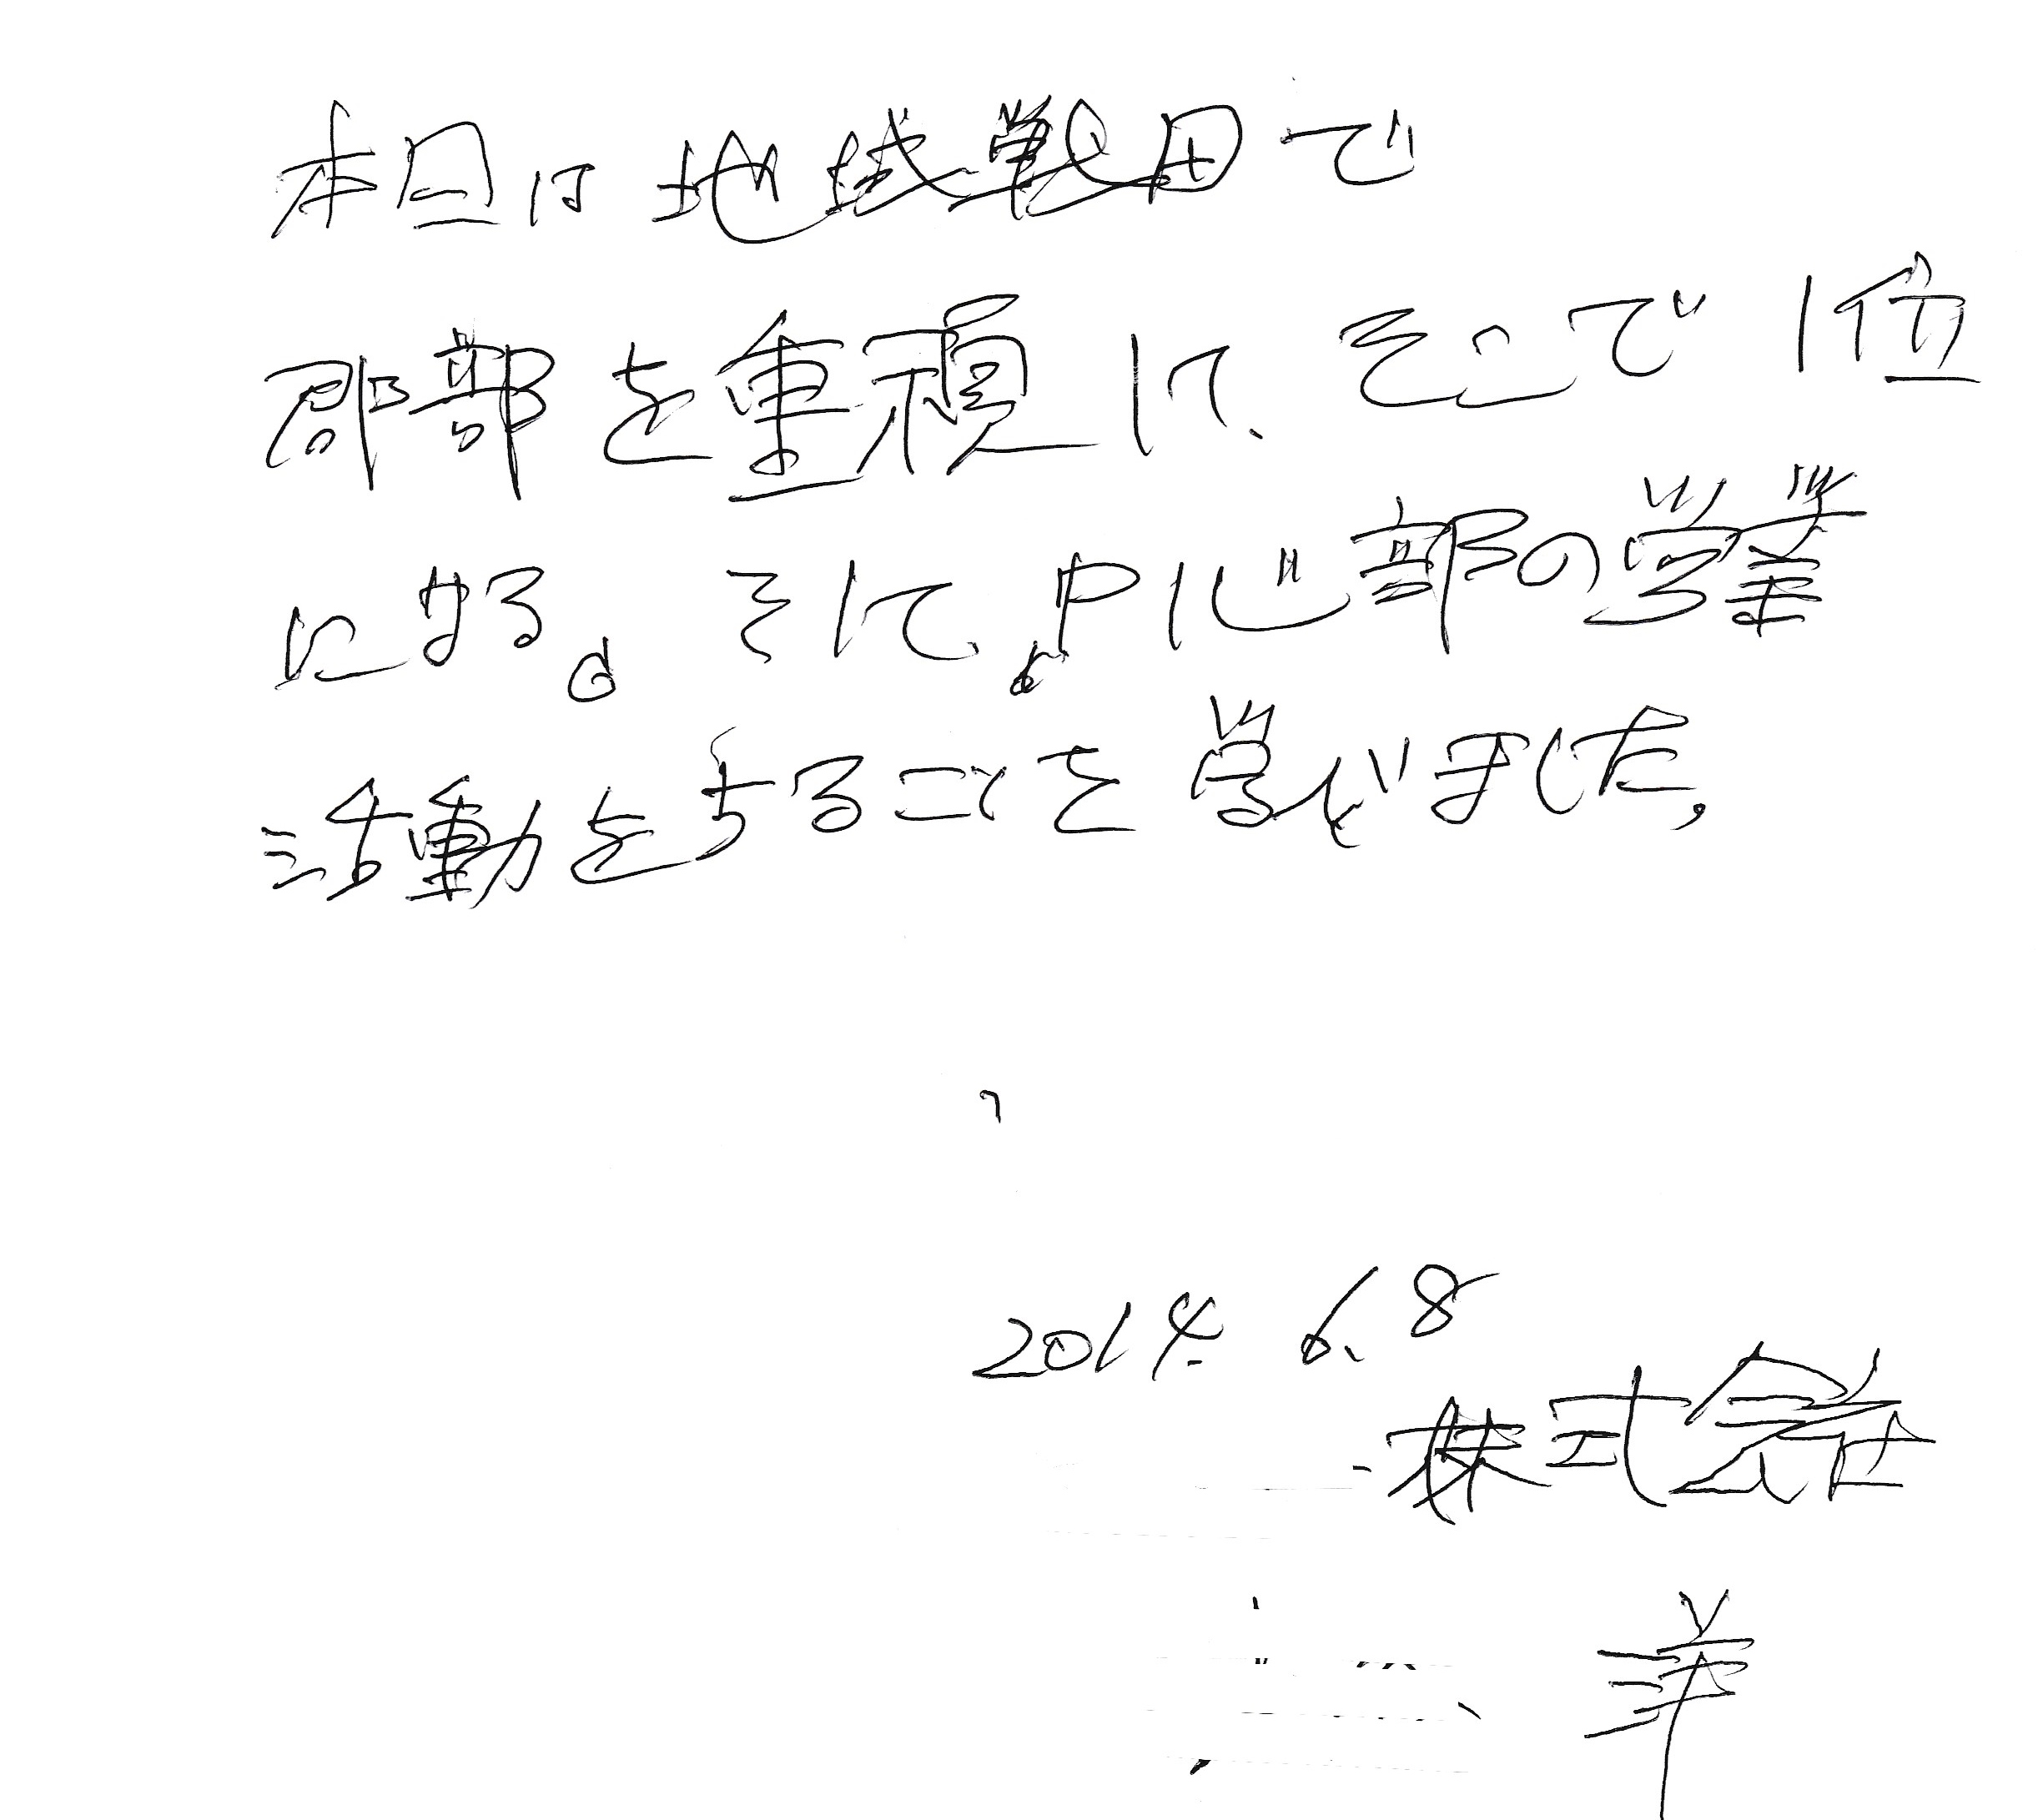 本日は地域戦略で
郡部を重視して、そこで1位
になる。そして、中心部の営業
活動をすることを学びました。
2014. 6. 8
株式会社
洋